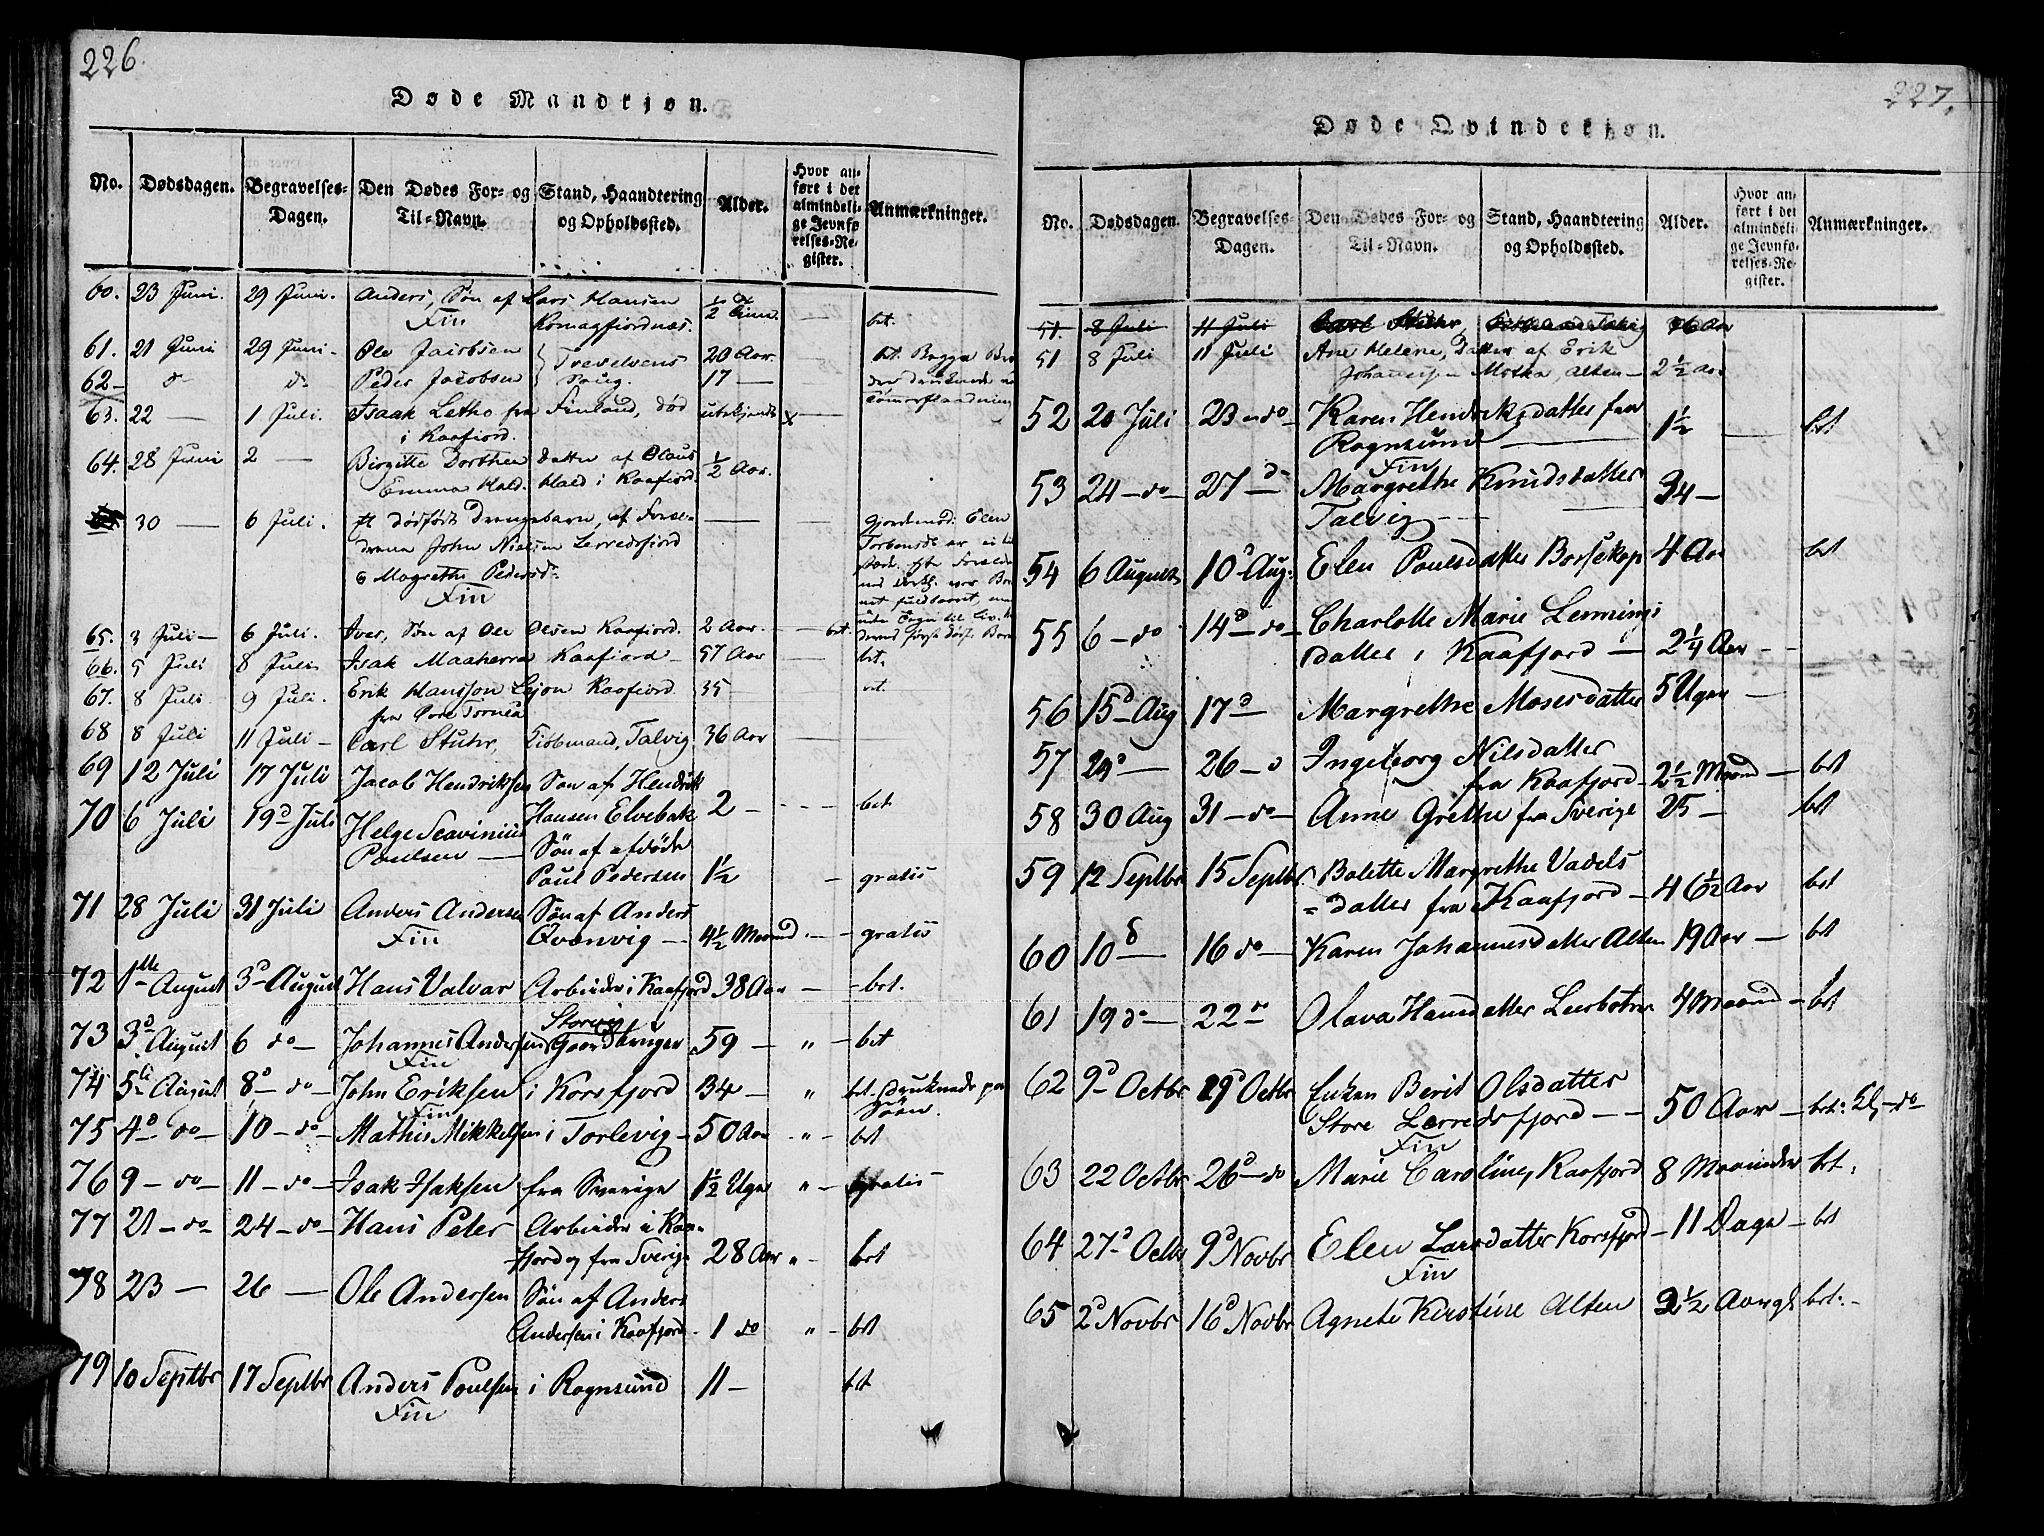 226.
Døde Mandkjøn.
No. Dødsdagen. Begravelses-Dagen. Den Dødes For- og Til-Navn. Stand, Haandtering og Opholdssted. Alder. Hvor anført i det almindelige Jevnførelses-Register. Anmærkninger.
60. 23 Juni. 29 Juni. Anders, Søn af Lars Hansen ½
Fin Komagfjordnæs. bet.
61. 21 Juni 29 Juni Ole Jacobsen 20 Aar. bet. Begge
62 do do Peder Jacobsen 17 — druknede
63. 22 — 1 Juli. Isaak Letho fra Finland, død ubekjendt
i Kaafjord.
64. 28 Juni 2 — Birgitte Dorthea Datter af Olaus ½ Aar.
Emma Hald. Hald i Kaafjord
30 — 6 Juli. et dødfødt Drengebarn, af Foræl- — Gjordemod: Elen
drene John Nielsen Lerredsfjord
& Magrethe Pedersd:
Fin
65. 3 Juli — 6 Juli. Iver, Søn af Ole Olsen Kaafjord. 2 Aar. — bet.
66. 5 Juli 8 Juli Isak Maaherra Kaafjord — 57 Aar — bet.
67. 8 Juli 9 Juli. Erik Hansson Lejon Kaafjord 35 — bet.
fra Öre Torneå
68 8 Juli 11 Juli — Carl Stuhr, Talvig 36 Aar
69 12 Juli 17 Juli Jacob Hendriksen Søn af Hendrik
Hansen Elvebak 2 — bet
70 6 Juli 19d Juli Helge Scavinius Søn af afdøde
Poulsen — Paul Pedersen 1½ — gratis
71 28 Juli 31 Juli Anders Andersen Søn af Anders
Fin Qvænvig — 4½ Maaned — gratis
72 1ste August 3d August Hans Valvar Arbeider i Kaafjord 38 Aar — bet.
73 3d August 6 do — Johannes Andersen Storvig Gaardbruger 59 — " bet
Fin
74 5te August 8d do — John Eriksen i Korsfjord 34 — " bet. druknede paa
Fin Søen.
75 4d do — 10 — do — Mathis Mikkelsen i Torlevig — 50 Aar " — bet
76 9 — do — 11 — do — Isak Isaksen fra Sverige 1½ Uge " — gratis
77 21 — do 24 — do — Hans Peter Arbeider i Kaa-
fjord og fra Sverige 28 Aar " — bet
78 23 — 26 — Ole Andersen Søn af Anders
Andersen i Kaafjord — 1 do " — bet
79 10 Septbr 17 Septbr Anders Poulsen i Rognsund 11 — bet
Fin
227.
Døde Qvindekjøn.
No. Dødsdagen. Begravelses-Dagen. Den Dødes For- og Til-Navn. Stand, Haandtering og Opholdssted. Alder. Hvor anført i det almindelige Jevnførelses-Register. Anmærkninger.
51. 8 Juli 11 Juli Carl Stuhr, Talvig 36 Aar
51 8 Juli 11 Juli Ane Helene, Datter af Erik
Johannesen Alten — 2½ Aar
52 20 Juli 23 — do — Karen Hendriksdatter fra
Rognsund — 1½ — bet
Fin
53 24 — do — 27 — d — Margrethe Knudsdatter 34 —
Talvig —
54 6 August 10d Aug: Elen Poulsdatter Bossekop 4 Aar bet
55 6 — do 14d — do — Charlotte Marie Lennings
datter i Kaafjord — 2¼ Aar —
56 15d Aug 17d — Margrethe Mosesdatter 5 Uger —
57 26 — d Ingeborg Nilsdatter
fra Kaafjord — 2½ Maaned — bet
58 30 Aug 31 — do — Anne Grethe fra Sverige 25 — bet
59 12 Septbr 15 Septbr. Bolette Margrethe Vadels
= datter fra Kaafjord — 46½ Aar bet
60 10 d — 16 do — Karen Johannesdatter Alten 19 Aar — bet
61 19 d — 22 — Olava Hansdatter Leerbotn 4 Maaned — bet
62 9d Octbr 19d Octbr Enken Berit Olsdatter
Store Lerredsfjord — 50 Aar — bet:
Fin
63 22 Octbr 26d — do Marie Caroline, Kaafjord 8 Maaneder bet.
64 27d Octbr 9d Novbr Elen Larsdatter Korsfjord — 11 Dage — bet
Fin
65 2d Novbr 16d Novbr Agnete Kirstine Alten 2½ Aargl bet. —